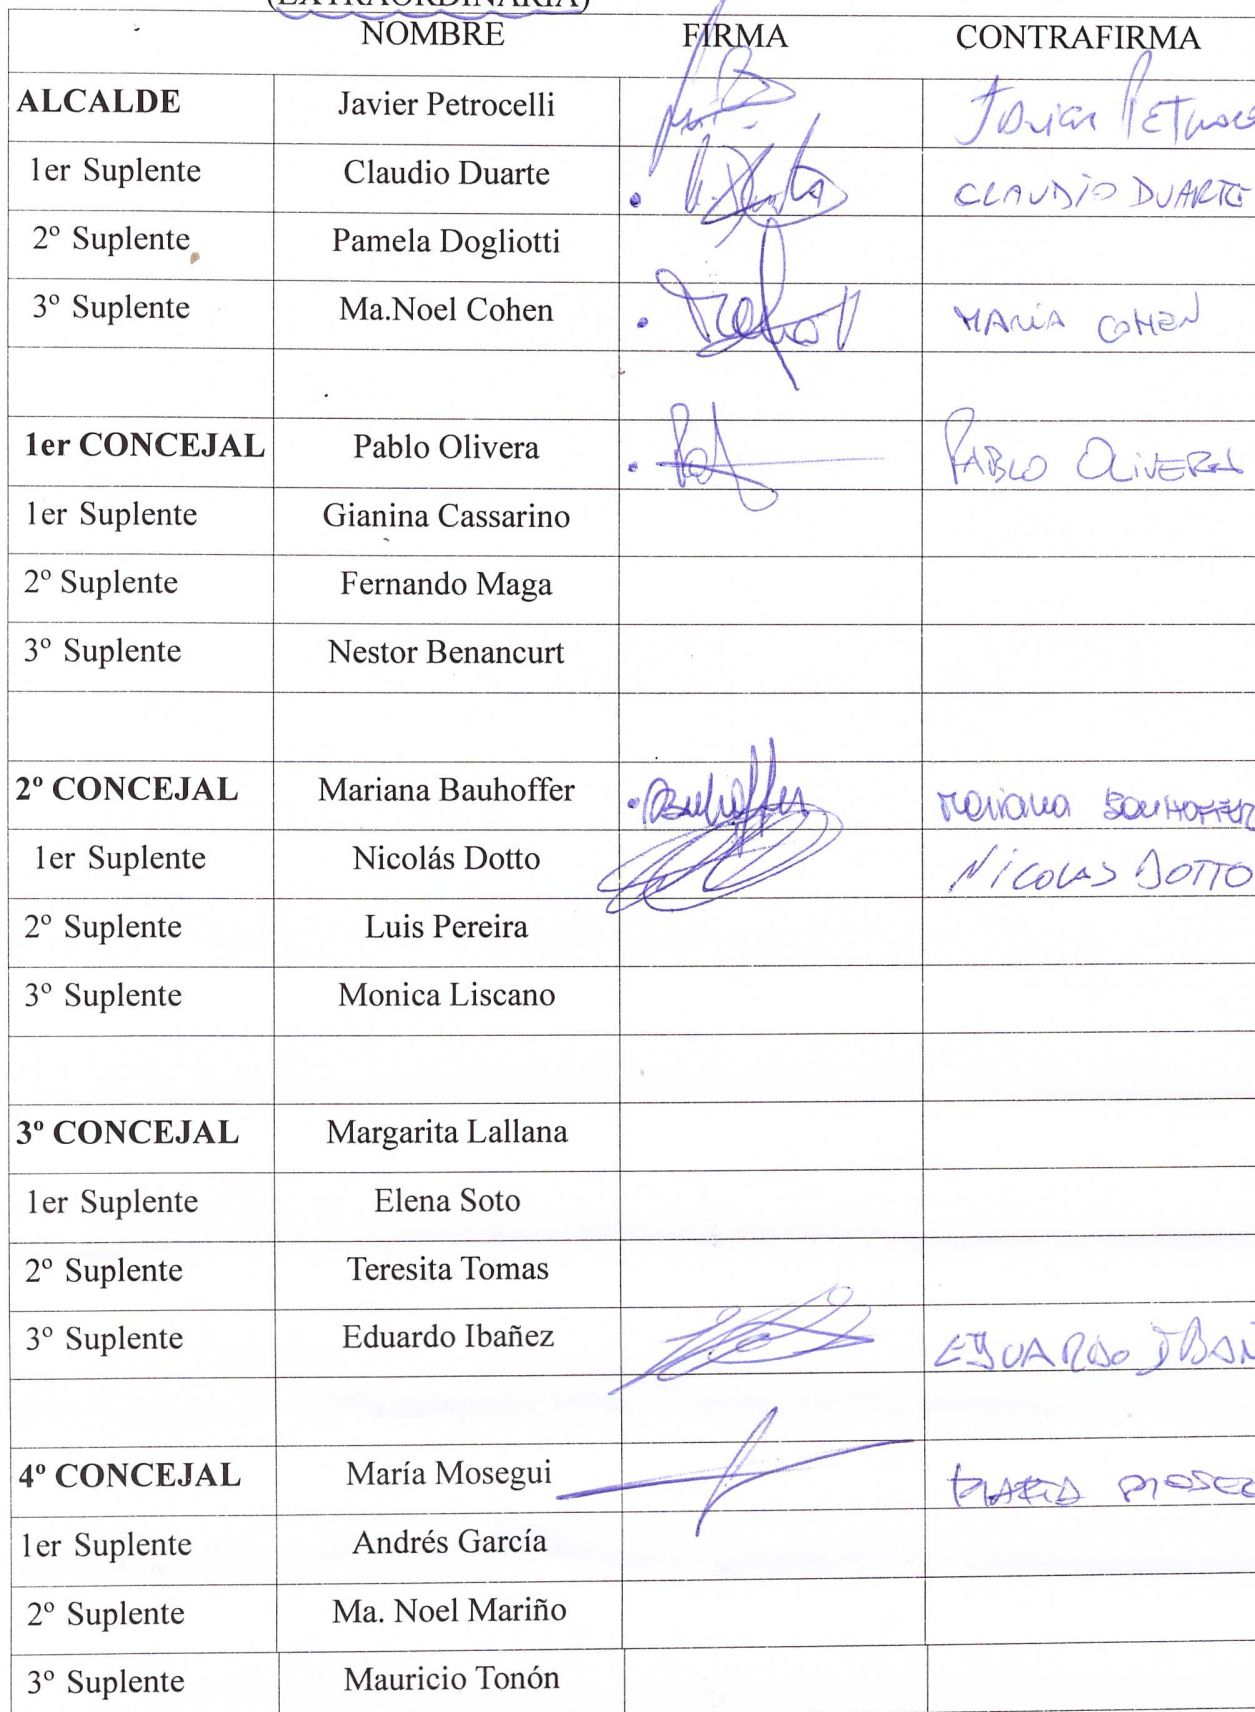 (EXTRAORDINARIA)
NOMBRE FIRMA CONTRAFIRMA
ALCALDE Javier Petrocelli Javier Petroce
1er Suplente Claudio Duarte CLAUDIO DUARTE
2º Suplente Pamela Dogliotti
3º Suplente Ma.Noel Cohen MARIA COHEN
1er CONCEJAL Pablo Olivera PABLO OLIVERA
1er Suplente Gianina Cassarino
2º Suplente Fernando Maga
3º Suplente Nestor Benancurt
2º CONCEJAL Mariana Bauhoffer Bauhoffer Mariana BAUHOFFER
1er Suplente Nicolás Dotto NicoLAS DOTTO
2º Suplente Luis Pereira
3º Suplente Monica Liscano
3º CONCEJAL Margarita Lallana
1er Suplente Elena Soto
2º Suplente Teresita Tomas
3º Suplente Eduardo Ibañez EDUARDO IBAÑ
4º CONCEJAL María Mosegui MARIA MOSEG
1er Suplente Andrés García
2º Suplente Ma. Noel Mariño
3º Suplente Mauricio Tonón